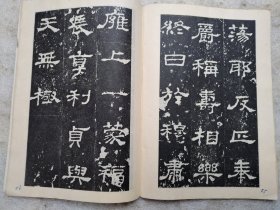 蕩耶反正奉
爵稱壽相樂
終日於穆肅
雍上下蒙福
長享利貞與
天無極